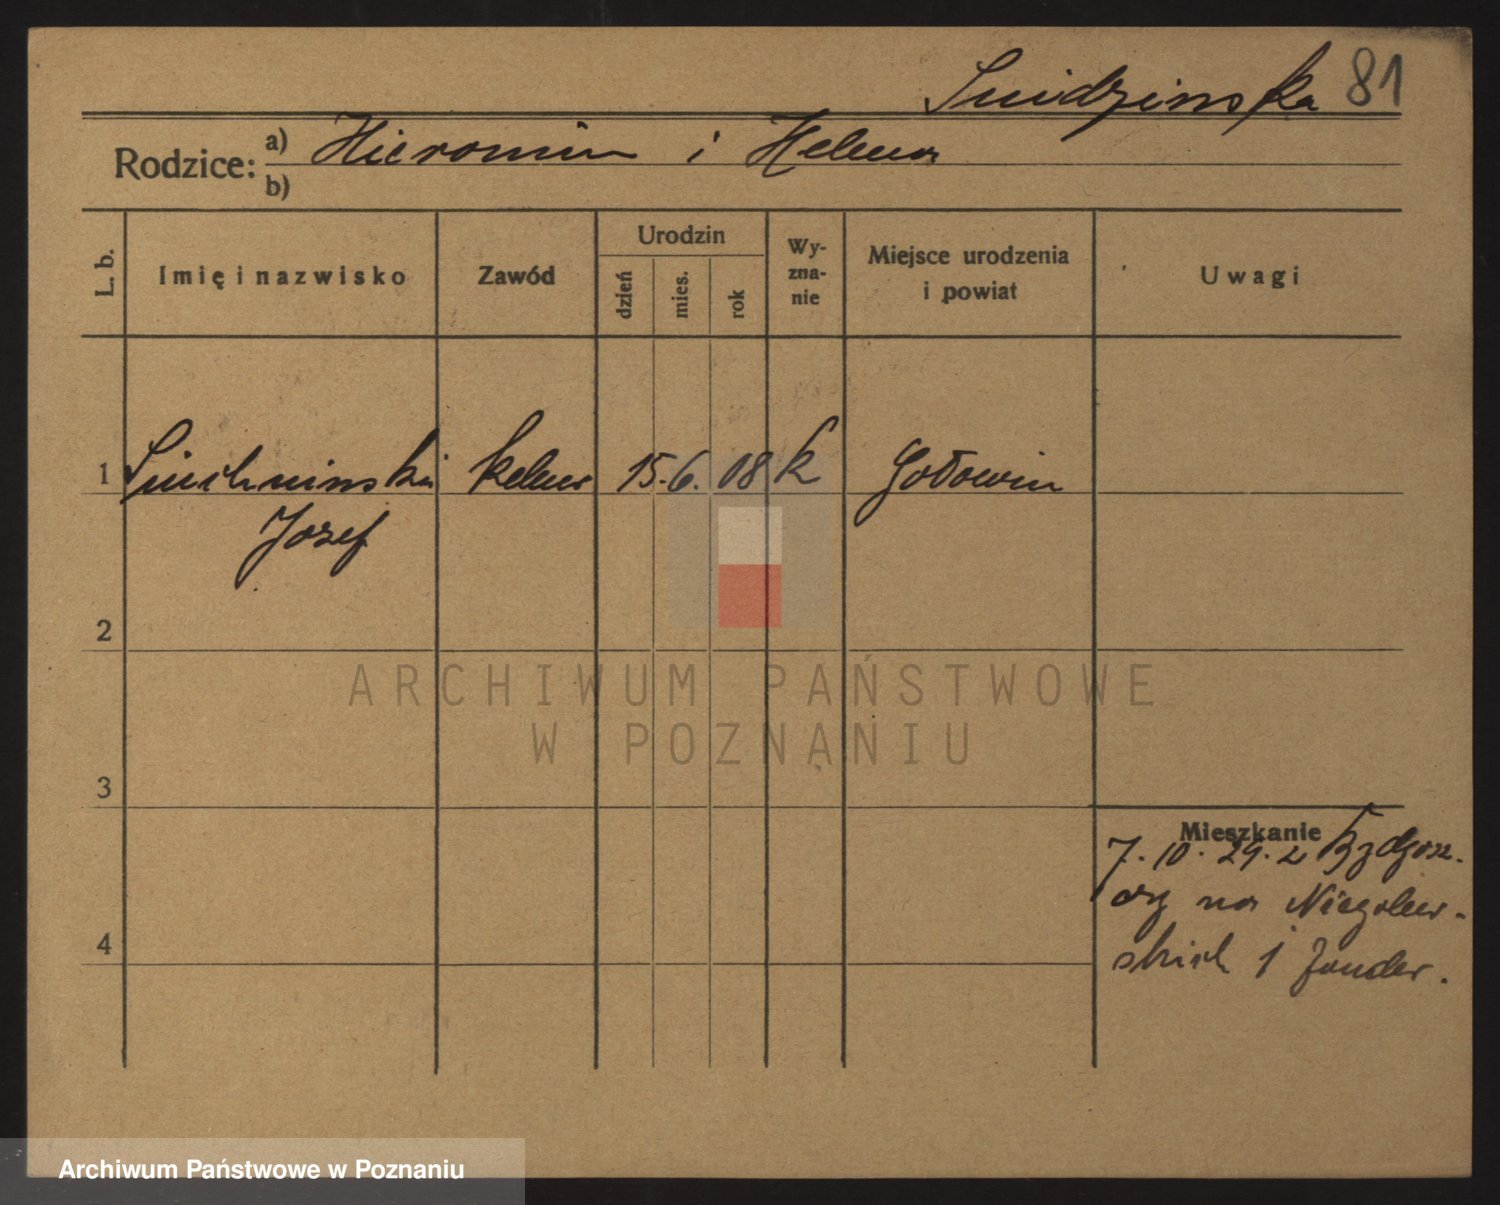 Śmidzinska 81
Rodzice: a) Hieronim i Helena
b)
L. b.
Imię i nazwisko
Zawód
Urodzin
dzień
mies.
rok
Wy-
zna-
nie
Miejsce urodzenia
i powiat
Uwagi
1 kelner 15. 6. 08 k Gołowin
Józef
2
ARCHIWUM PAŃSTWOWE
W POZNANIU
3
Mieszkanie
7. 10. 29. z Bydgosz.
czy na Niegolew-
skich 1
4
Archiwum Państwowe w Poznaniu